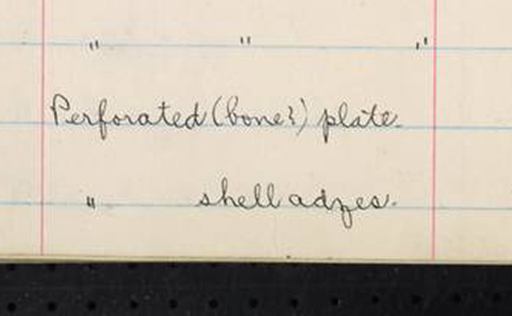 " " "
Perforated (bone?) plate.
" shell adzes.